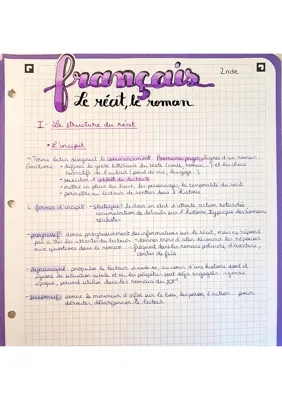 français
2nde
Le récit, le roman
I - La structure du récit
• L'incipit
Terme latin désignant le commencement. Premières pages/lignes d'un roman
fonctions - définir le genre littéraire du texte (conte, roman...) et les choix
narratifs de l'auteur (point de vue, langage...)
- susciter l'intérêt du lecteur
- mettre en place les lieux, les personnages, la temporalité du récit
- permettre au lecteur de rentrer dans l'histoire
4 formes d'incipit - statique : lecteur en état d'attente, action retardée
accumulation de détails sur l'histoire, typique des romans
réalistes
- progressif : donne progressivement des informations sur le récit, mais ne répond
pas à ttes les attentes du lecteur - donne envie d'aller découvrir les réponses
aux questions dans le roman -
- dynamique : propulse le lecteur au
ignore la situation initiale et où les péripéties sont déjà engagées
époque, souvent utilisé dans les romans du XX
- suspensif : donne le minimum d'infos sur le lieu, les persos, l'action... pour
dérouter, désorienter le lecteur.